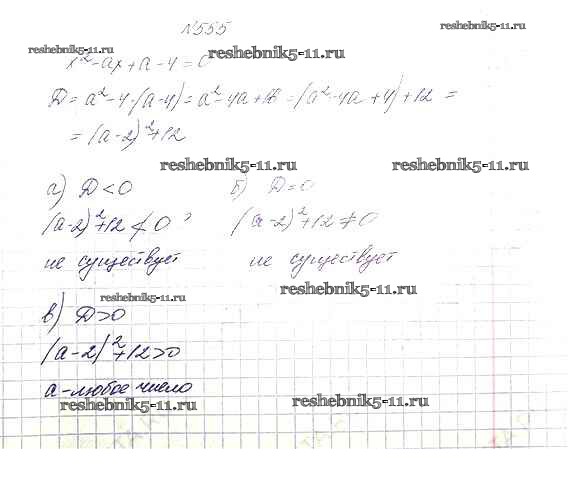 №555
reshebnik5-11.ru
reshebnik5-11.ru
reshebnik5-11.ru
x² - ax + a - 4 = 0
D = a² - 4·(a-4) = a² - 4a + 16 = (a² - 4a + 4) + 12 =
= (a-2)² + 12
reshebnik5-11.ru reshebnik5-11.ru
а) D < 0 б) D = 0
(a-2)² + 12 ≮ 0 (a-2)² + 12 ≠ 0
не существует не существует
reshebnik5-11.ru reshebnik5-11.ru
в) D > 0
(a-2)² + 12 > 0
a - любое число
reshebnik5-11.ru reshebnik5-11.ru